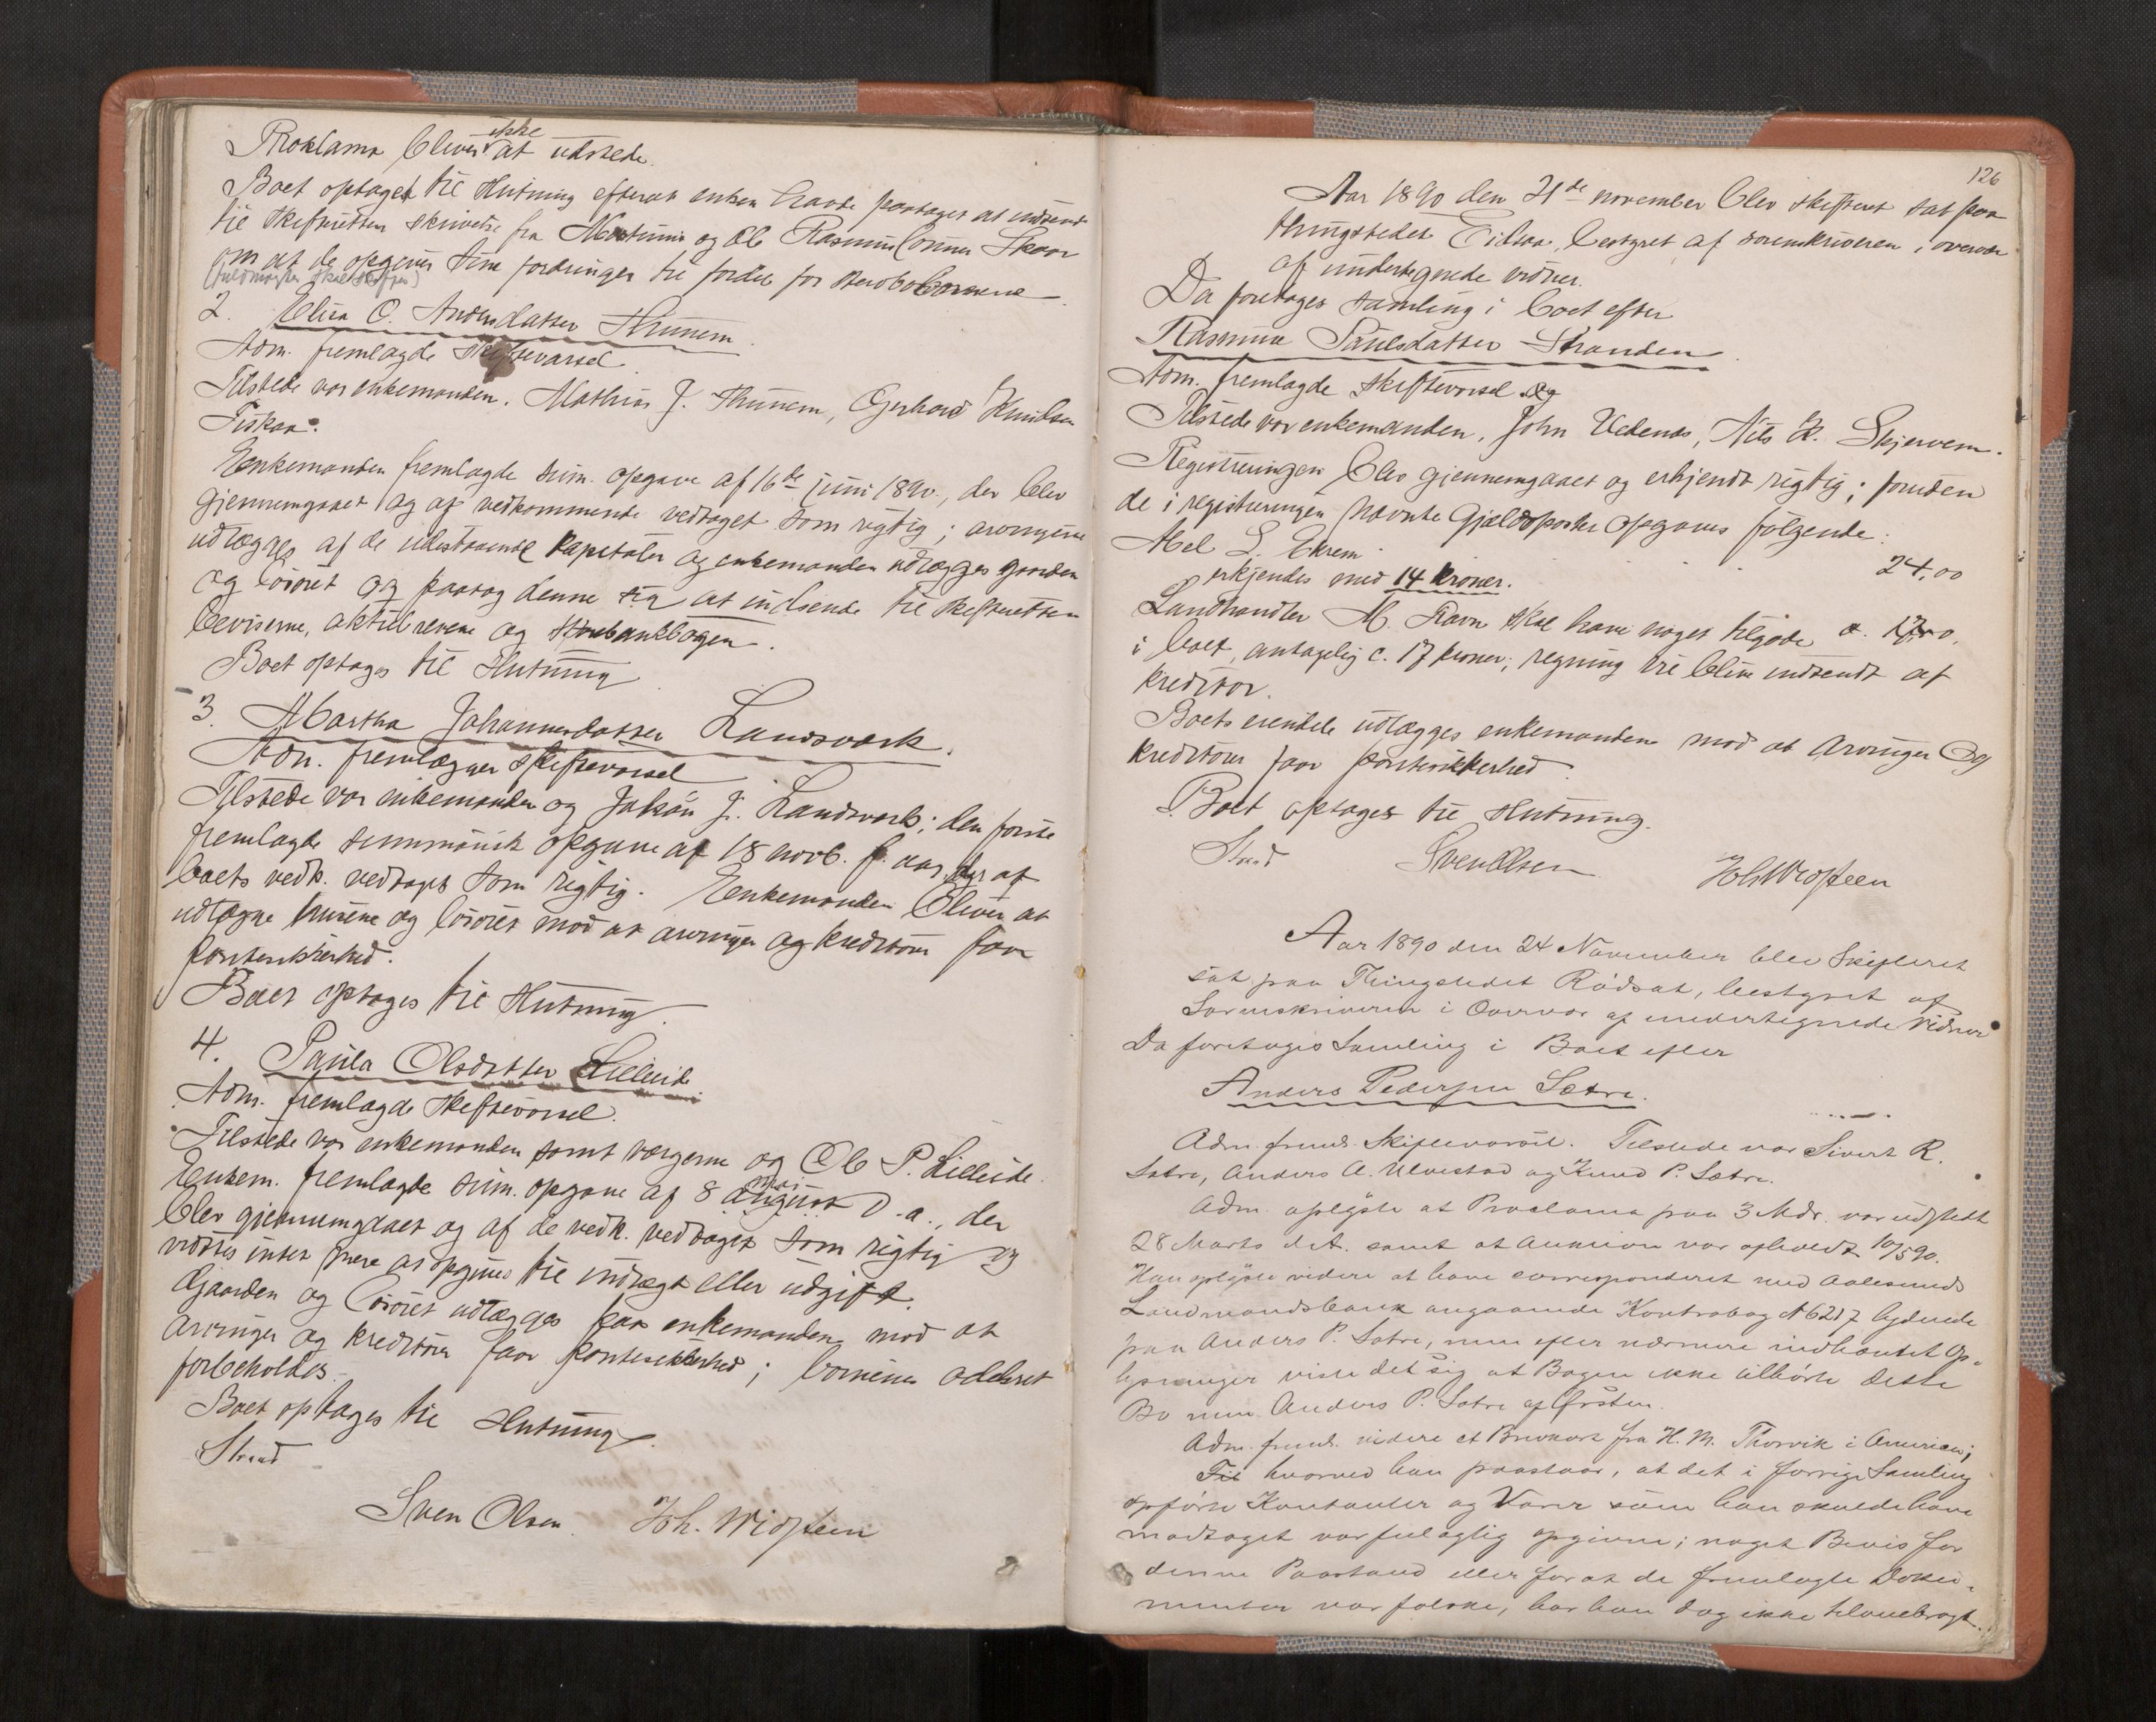 Proklama bliver ikke at udstede.
Boet optaget til slutning efterat enken havde paataget at indsende
til skifteretten skrivelse fra Martinus og Ole Rasmus Skaar
om at de opgiver sine fordringer til fordel for
(fuldmagter skal)
2. Elisa O. Andersdatter Thunem.
Adm. fremlagde skiftevarsel.
Tilstede var enkemanden, Mathias J. Thunem, Gerhard Knudsen
Fiskaa.
Enkemanden fremlagde sum. opgave af 16de juni 1890, der blev
gjennemgaaet og af vedkommende vedtaget som rigtig; arvingerne
udlægges af de udestaaende kapitaler og enkemanden udlægges gaarden
og løsøret og paatog denne sig at indsende til skifteretten
beviserne, aktiebrevene og bankbogen.
Boet optages til slutning
3. Martha Johannesdatter Landsværk.
Adm. fremlægger skiftevarsel
Tilstede var enkemanden og Jakob J. Landsværk; den første
fremlagde summarisk opgave af 18 novb. f. aar, der af
boets vedk. vedtages som rigtig. Enkemanden bliver at
udlægge husene og løsøret mod at arvinger og kreditorer faar
pantesikkerhed.
Boet optages til slutning.
4. Paula Olsdatter Lilleeide.
Adm. fremlagde skiftevarsel.
Tilstede var enkemanden samt værgerne og Ole P. Lilleeide.
Enkem. fremlagde sum. opgave af 8 august mai d. a., der
blev gjennemgaaet og af de vedk. vedtaget som rigtig og
vidstes intet mere at opgives til indtægt eller udgift.
Gaarden og løsøret udlægges paa enkemanden mod at
arvinger og kreditorer faar pantesikkerhed; børnenes odelsret
forbeholdes.
Boet optages til slutning.
Strand
Sven Olsen. Joh. Widsteen
126
Aar 1890 den 21de november blev skifteret sat paa
thingstedet Eidsaa, bestyret af sorenskriveren, i overvær
af undertegnede vidner.
Da foretages samling i boet efter
Rasmine Paulsdatter Stranden.
Adm. fremlagde skiftevarsel. Og
Tilstede var enkemanden, John Vedenæs, Nils K. Skjervem.
Registreringen blev gjennemgaaet og erkjendt rigtig; foruden
de i registreringen nævnte gjældsposter opgaves følgende:
Abel L. Ekrem 24,00
erkjendes med 14 kroner.
Landhandler M. Ravn skal have noget tilgode
i boet, antagelig c. 17 kroner; regning vil blive indsendt af
kreditor.
Boets eiendele udlægges enkemanden mod at arvinger og
kreditorer faar pantesikkerhed.
Boet optages til slutning.
Strand Sven Olsen Joh Widsteen
Aar 1890 den 24 November blev Skifteret
sat paa Thingstedet Rødsæt, bestyret af
Sorenskriveren i Overvær af undertegnede Vidner.
Da foretages Samling i Boet efter
Anders Pedersen Sætre.
Adm. freml. Skiftevarsel. Tilstede var Sivert R.
Sætre, Anders A. Ulvestad og Knud P. Sætre.
Adm. oplyste at Proclama paa 3 Mdr. var udstedt
28 Marts d.A. samt at Auction var afholdt 10/5 90.
Han oplyste videre at have correspondert med Aalesunds
Landmandsbank angaaende Kontrabog N 6217 lydende
paa Anders P. Sætre, men efter nærmere indhentet Op-
lysninger viste det sig at Bogen ikke tilhørte dette
Bo men Anders P. Sætre af Ørsten.
Adm. freml. videre et Brevkort fra H. M. Thorvik i America;
Til hvorved han paastaar, at det i forrige Samling
opførte Kontanter og Varer som han skulde have
modtaget var feilagtig opgivne; noget Bevis for
denne Paastand eller for at de fremlagte Doku-
menter var falske, har han dog ikke tilveiebragt.